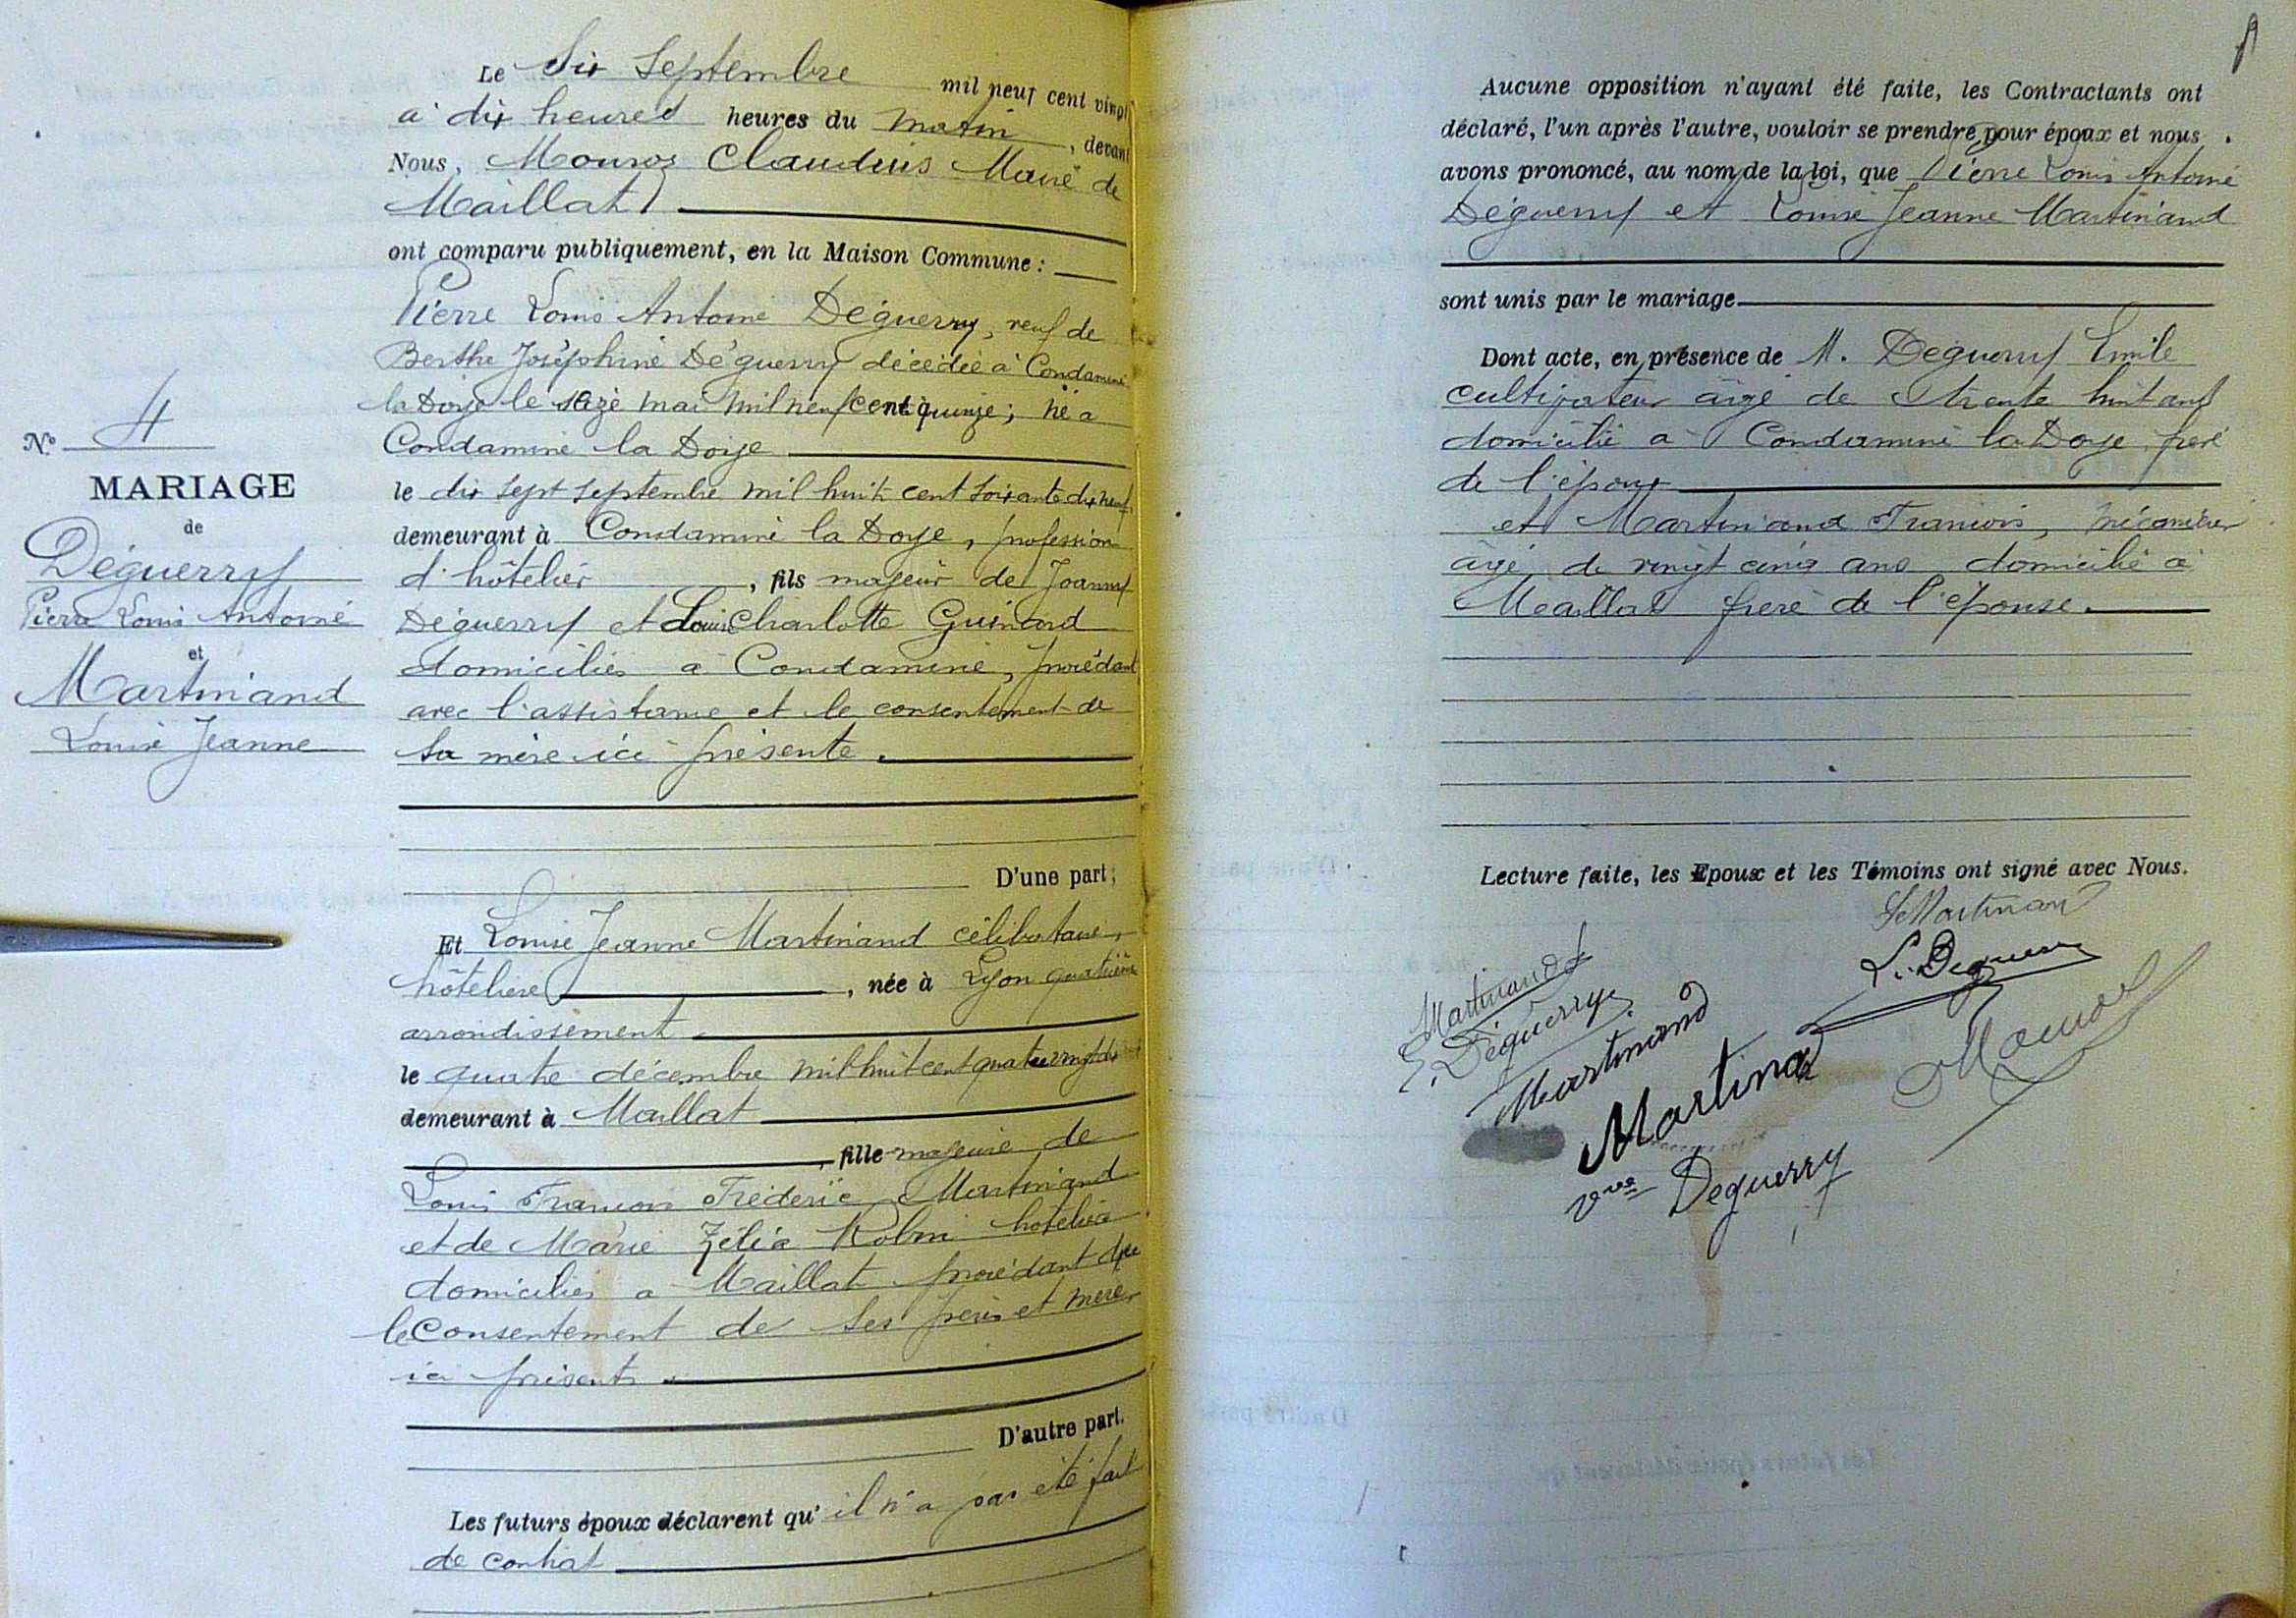 Nº 4
MARIAGE
de
Déguerry
Pierre Louis Antoine
et
Martinand
Louise Jeanne
Le Six Septembre mil neuf cent vingt
à dix heures heures du matin, devant
Nous, Claudius Maire de
Maillat
ont comparu publiquement, en la Maison Commune :
Pierre Louis Antoine Déguerry, veuf de
Berthe Joséphine Déguerry décédée à Condamine
la Doye le seize mai mil neuf cent quinze; né à
Condamine la Doye
le dix sept septembre mil huit cent soixante dix neuf
demeurant à Condamine la Doye, profession
d'hôtelier, fils majeur de Joanny
Déguerry et Louise Charlotte Guinard
domiciliés à Condamine, procédant
avec l'assistance et le consentement de
sa mère ici présente.
D'une part ;
Et Louise Jeanne Martinand célibataire,
hôtelière, née à Lyon quatrième
arrondissement
le quatre décembre mil huit cent quatre vingt dix
demeurant à Maillat
, fille majeure de
Louis François Fréderic Martinand
et de Marie Zélia hôteliers
domiciliés a Maillat procédant avec
le consentement de ses père et mère
ici présents.
D'autre part.
Les futurs époux déclarent qu'il n'a pas été fait
de contrat
Aucune opposition n'ayant été faite, les Contractants ont
déclaré, l'un après l'autre, vouloir se prendre pour époux et nous
avons prononcé, au nom de la loi, que Pierre Louis Antoine
Déguerry et Louise Jeanne Martinand
sont unis par le mariage
Dont acte, en présence de M. Déguerry Emile
cultivateur âgé de trente huit ans
domicilié à Condamine la Doye frère
de l'époux
et Martinand François, mécanicien
âgé de vingt cinq ans domicilié à
Maillat frère de l'épouse.
Lecture faite, les Epoux et les Témoins ont signé avec Nous.
Martinand
L. Deguerry
Martinand
E. Déguerry
Martinand
Martinand
vve Deguerry